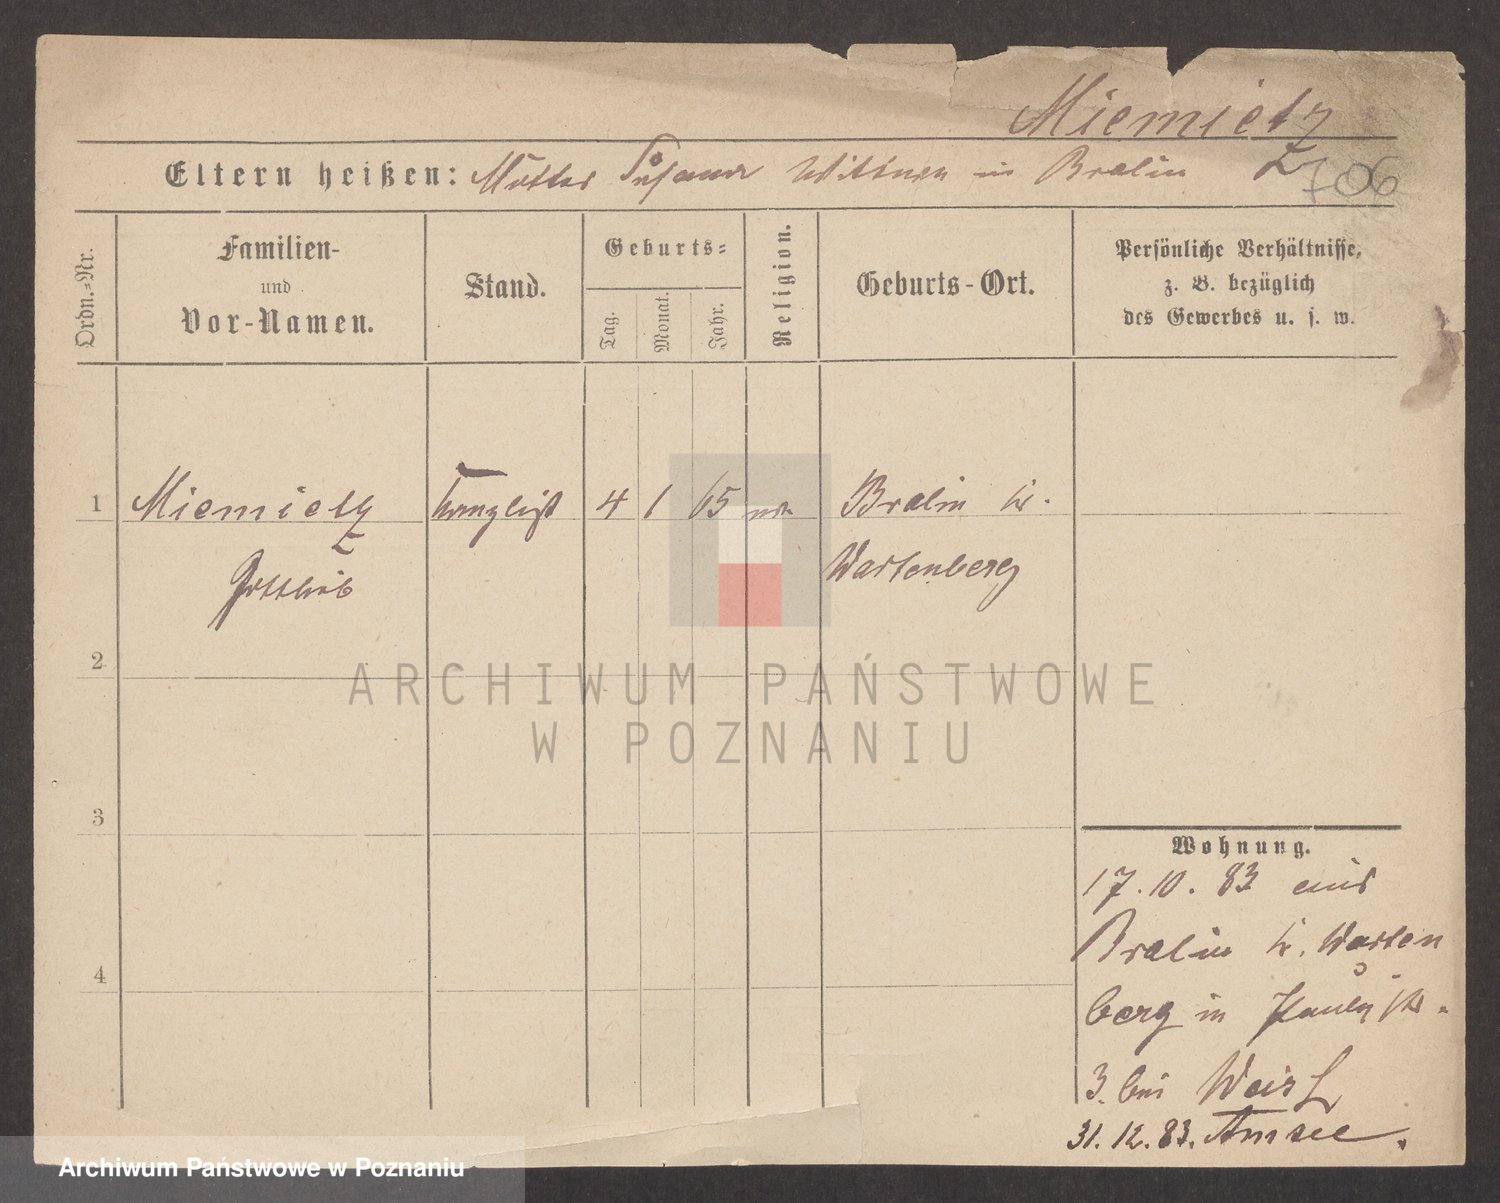 Miemietz
Eltern heißen: Mutter Susanna Wittner in Bralin
706
Ordn.=Nr.
Familien-
und
Vor-Namen.
Stand.
Geburts=
Tag.
Monat.
Jahr.
Religion.
Geburts-Ort.
Persönliche Verhältnisse,
z. B. bezüglich
des Gewerbes u. s. w.
1 Miemietz Kanzlist 4 1 65 Bralin Kr.
Gottlieb Wartenberg
2
ARCHIWUM PAŃSTWOWE
W POZNANIU
3
Wohnung.
17.10.83 aus
Bralin Kr. Warten
4
berg in
3. bei
31.12.83. Amsee.
Archiwum Państwowe w Poznaniu